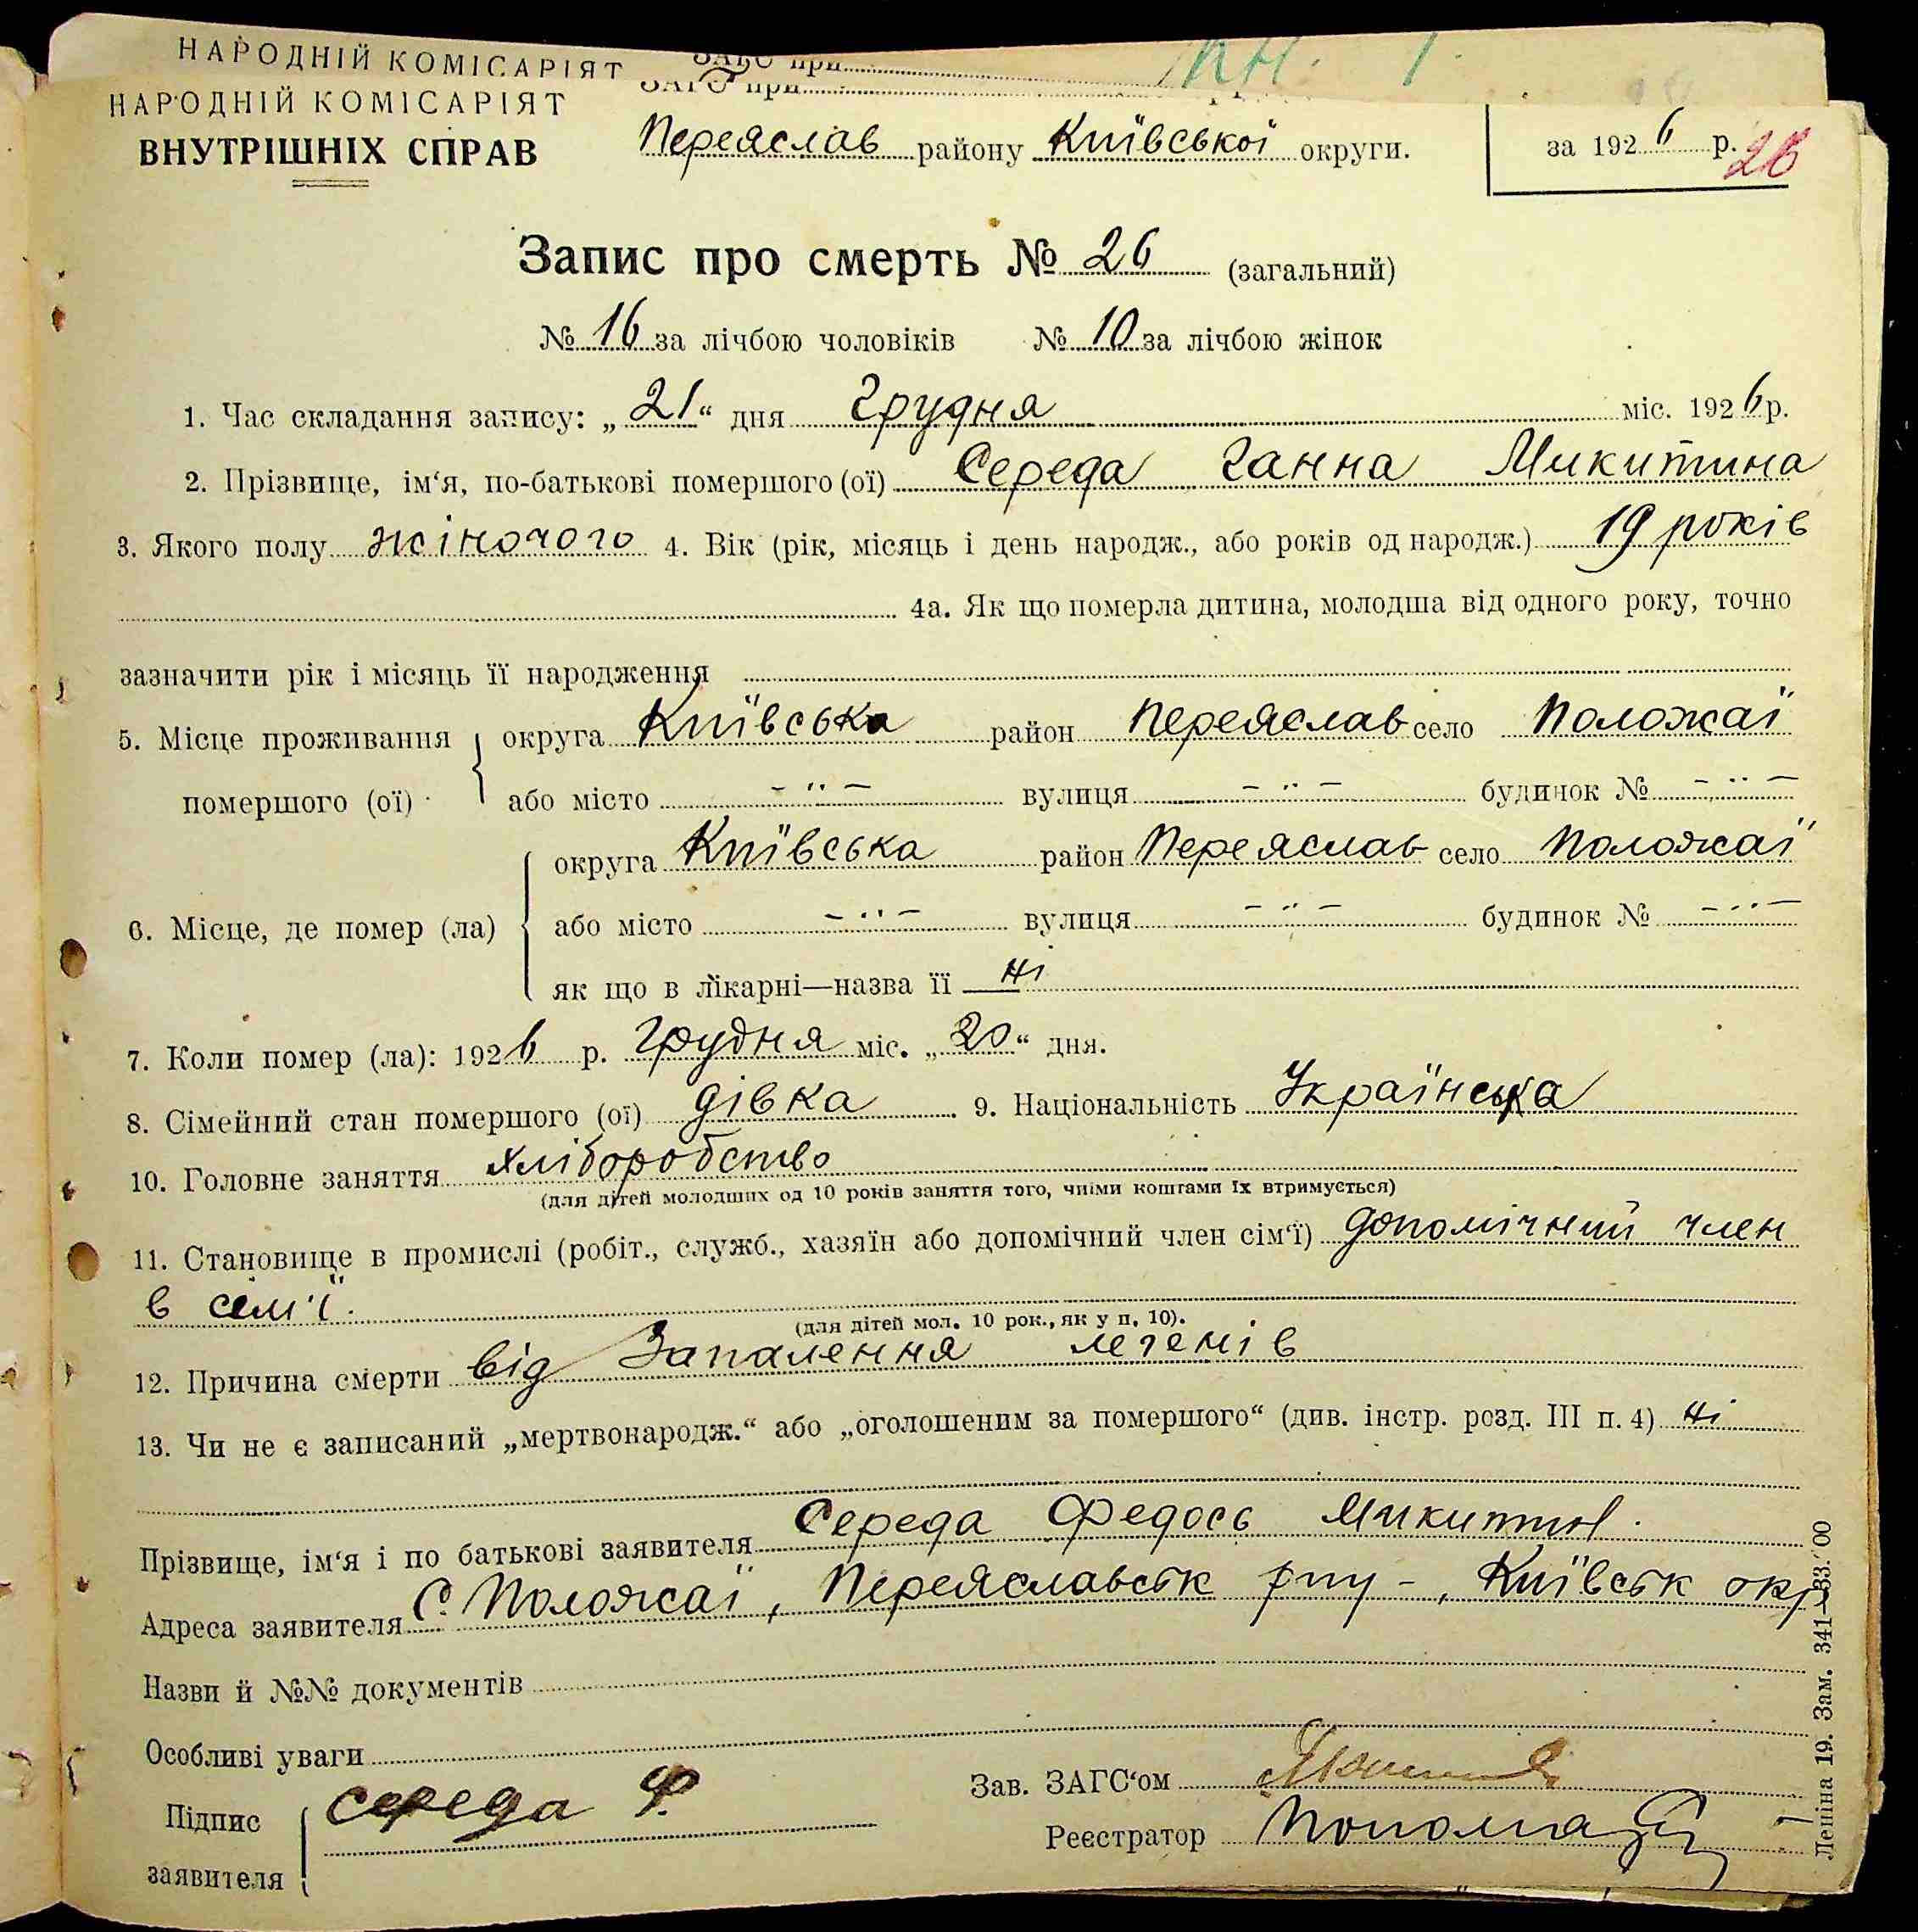 НАРОДНІЙ КОМІСАРІЯТ ЗАГС при
НАРОДНІЙ КОМІСАРІЯТ ЗАГС при
ВНУТРІШНІХ СПРАВ
Переяслав району Київської округи.
за 1926 р. 26
Запис про смерть № 26 (загальний)
№ 16 за лічбою чоловіків № 10 за лічбою жінок
1. Час складання запису: „21“ дня Грудня міс. 1926 р.
2. Прізвище, ім‘я, по-батькові помершого (ої) Середа Ганна Микитина
3. Якого полу жіночого 4. Вік (рік, місяць і день народж., або років од народж.) 19 років
4а. Як що померла дитина, молодша від одного року, точно
зазначити рік і місяць її народження
5. Місце проживання округа Київська район Переяслав село Положаї
помершого (ої) або місто – " – вулиця – " – будинок № – " –
округа Київська район Переяслав село Положаї
6. Місце, де помер (ла) або місто – " – вулиця – " – будинок № – " –
як що в лікарні—назва її ні
7. Коли помер (ла): 1926 р. Грудня міс. „20“ дня.
8. Сімейний стан помершого (ої) дівка 9. Національність Українська
10. Головне заняття хліборобство
(для дітей молодших од 10 років заняття того, чиїми коштами їх втримується)
11. Становище в промислі (робіт., служб., хазяїн або допомічний член сім‘ї) допомічний член
в сем'ї.
(для дітей мол. 10 рок., як у п. 10).
12. Причина смерти від Запалення легенів
13. Чи не є записаний „мертвонародж.“ або „оголошеним за помершого“ (див. інстр. розд. III п. 4) ні
Прізвище, ім‘я і по батькові заявителя Середа Федось Микитин.
Адреса заявителя С. Положаї, Переяславськ рну-, Київськ окр
Назви й №№ документів
Особливі уваги
Підпис заявителя Середа Ф.
Зав. ЗАГС‘ом
Реєстратор Пономар
Леніна 19. Зам. 341—33.